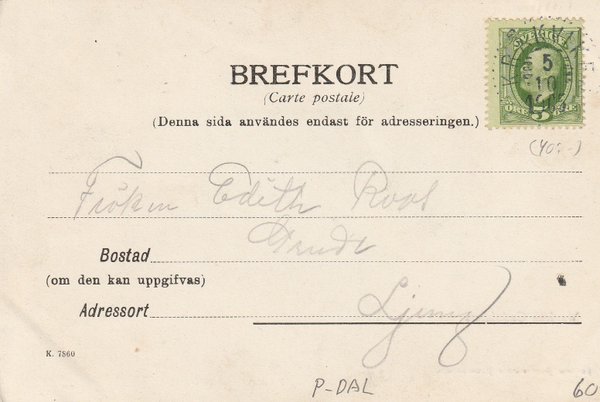 BREFKORT
(Carte postale)
(Denna sida användes endast för adresseringen.)
SVERIGE
5
10
5
(400:-)
Fröken Edith Roos
Bostad
(om den kan uppgifvas)
Adressort
Ljung
K. 7860
P-DAL
60